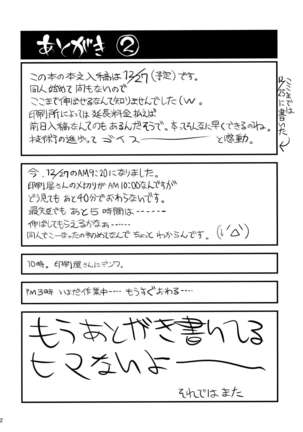 あとがき②
この本の本文入稿は12/27(予定)です。
同人始めて間もないので
ここまで伸ばせるなんて知りませんでした(w。
印刷所によっては延長料金払えば
前日入稿なんてのもあるんだそうで。本ってそんなに早くできるのね。
技術の進歩って
と感動。
ここまでは
12/25に書いたり
今、12/27のAM9:20になりました。
印刷屋さんのメ切りがAM10:00なんですが
どう見てもあと40分でおわらないです。
最欠でもあと5時間は------
伸ばしてもらえるかなぁ-----
同人でこーなったの初めてなんでちょっとわからんです。
10時。印刷屋さんにデンワ。
PM3時 いまだ作業中---- もうすぐおわる----
もうあとがき書いてる
ヒマないよーーー
それではまた
2